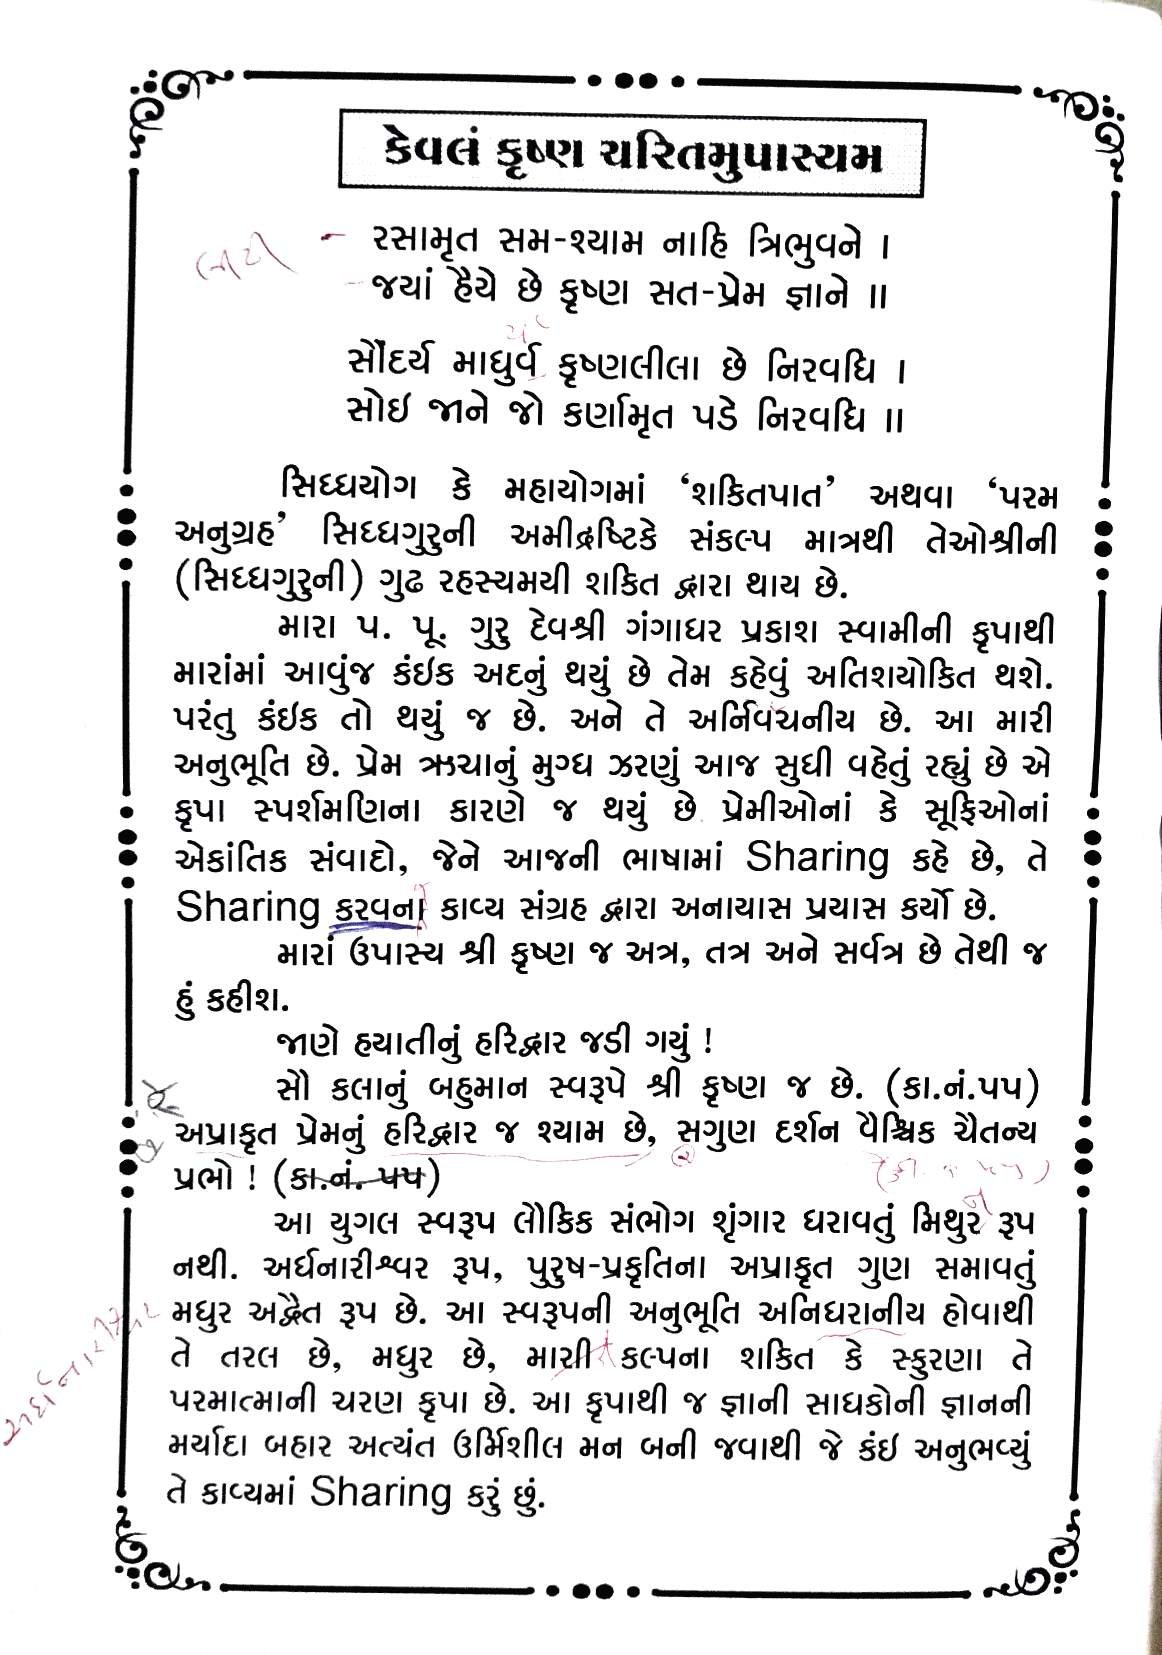 કેવલં કૃષ્ણ ચરિતમુપાસ્યમ
રસામૃત સમ-શ્યામ નાહિ ત્રિભુવને ।
જયાં હૈયે છે કૃષ્ણ સત-પ્રેમ જ્ઞાને ॥
સૌંદર્ય માધુર્વ કૃષ્ણલીલા છે નિરવધિ ।
સોઇ જાને જો કર્ણામૃત પડે નિરવધિ ॥
સિધ્ધયોગ કે મહાયોગમાં ‘શકિતપાત’ અથવા ‘પરમ
અનુગ્રહ’ સિધ્ધગુરુની અમીદ્રષ્ટિકે સંકલ્પ માત્રથી તેઓશ્રીની
(સિધ્ધગુરુની) ગુઢ રહસ્યમયી શકિત દ્વારા થાય છે.
મારા પ. પૂ. ગુરુ દેવશ્રી ગંગાધર પ્રકાશ સ્વામીની કૃપાથી
મારાંમાં આવુંજ કંઇક અદનું થયું છે તેમ કહેવું અતિશયોકિત થશે.
પરંતુ કંઇક તો થયું જ છે. અને તે અર્નિવચનીય છે. આ મારી
અનુભૂતિ છે. પ્રેમ ઋચાનું મુગ્ધ ઝરણું આજ સુધી વહેતું રહ્યું છે એ
કૃપા સ્પર્શમણિના કારણે જ થયું છે પ્રેમીઓનાં કે સૂફિઓનાં
એકાંતિક સંવાદો, જેને આજની ભાષામાં Sharing કહે છે, તે
Sharing કરવના કાવ્ય સંગ્રહ દ્વારા અનાયાસ પ્રયાસ કર્યો છે.
મારાં ઉપાસ્ય શ્રી કૃષ્ણ જ અત્ર, તત્ર અને સર્વત્ર છે તેથી જ
હું કહીશ.
જાણે હયાતીનું હરિદ્વાર જડી ગયું !
સૌ કલાનું બહુમાન સ્વરૂપે શ્રી કૃષ્ણ જ છે. (કા.નં.૫૫)
અપ્રાકૃત પ્રેમનું હરિદ્વાર જ શ્યામ છે, સગુણ દર્શન વૈશ્વિક ચૈતન્ય
પ્રભો ! (કા.નં. ૫૫)
આ યુગલ સ્વરૂપ લૌકિક સંભોગ શૃંગાર ધરાવતું મિથુર રૂપ
નથી. અર્ધનારીશ્વર રૂપ, પુરુષ-પ્રકૃતિના અપ્રાકૃત ગુણ સમાવતું
મધુર અદ્વૈત રૂપ છે. આ સ્વરૂપની અનુભૂતિ અનિધરાનીય હોવાથી
તે તરલ છે, મધુર છે, મારી કલ્પના શકિત કે સ્કુરણા તે
પરમાત્માની ચરણ કૃપા છે. આ કૃપાથી જ જ્ઞાની સાધકોની જ્ઞાનની
મર્યાદા બહાર અત્યંત ઉર્મિશીલ મન બની જવાથી જે કંઇ અનુભવ્યું
તે કાવ્યમાં Sharing કરું છું.